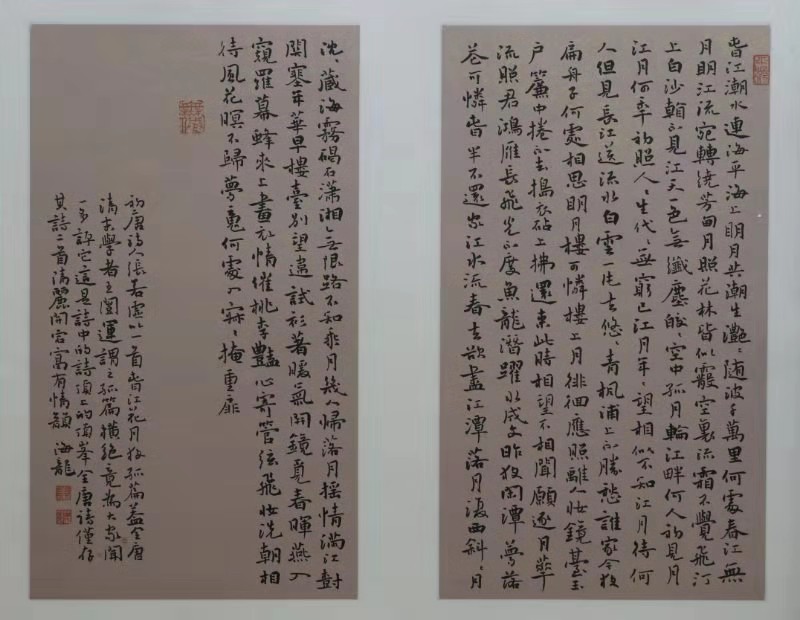 春江潮水連海平海上明月共潮生灔〻随波千萬里何處春江無
月明江流宛轉繞芳甸月照花林皆似霰空裏流霜不覺飛汀
上白沙看不見江天一色無纖塵皎〻空中孤月輪江畔何人初見月
江月何年初照人〻生代〻無窮已江月年〻望相似不知江月待何
人但見長江送流水白雲一片去悠〻青楓浦上不勝愁誰家今夜
扁舟子何處相思明月樓可憐樓上月徘徊應照離人妝鏡臺玉
户簾中捲不去搗衣砧上拂還來此時相望不相聞願逐月華
流照君鴻雁長飛光不度魚龍潛躍水成文昨夜閑潭夢落
花可憐春半不還家江水流春去欲盡江潭落月復西斜〻月
沈〻藏海霧碣石瀟湘無限路不知乘月幾人歸落月摇情滿江樹
關塞年華早樓臺別望違試衫著暖氣開鏡覓春暉燕入
窺羅幕蜂來上畫衣情催桃李豔心寄管弦飛妝洗朝相
待風花暝不歸夢魂何處入寂〻掩重扉
初唐詩人張若虛以一首春江花月夜孤篇蓋全唐
清末學者王闓運謂之孤篇横絕竟為大家聞
一多評它這是詩中的詩頂上的頂峯全唐诗僅存
其詩二首清麗開宕富有情韻 海龍